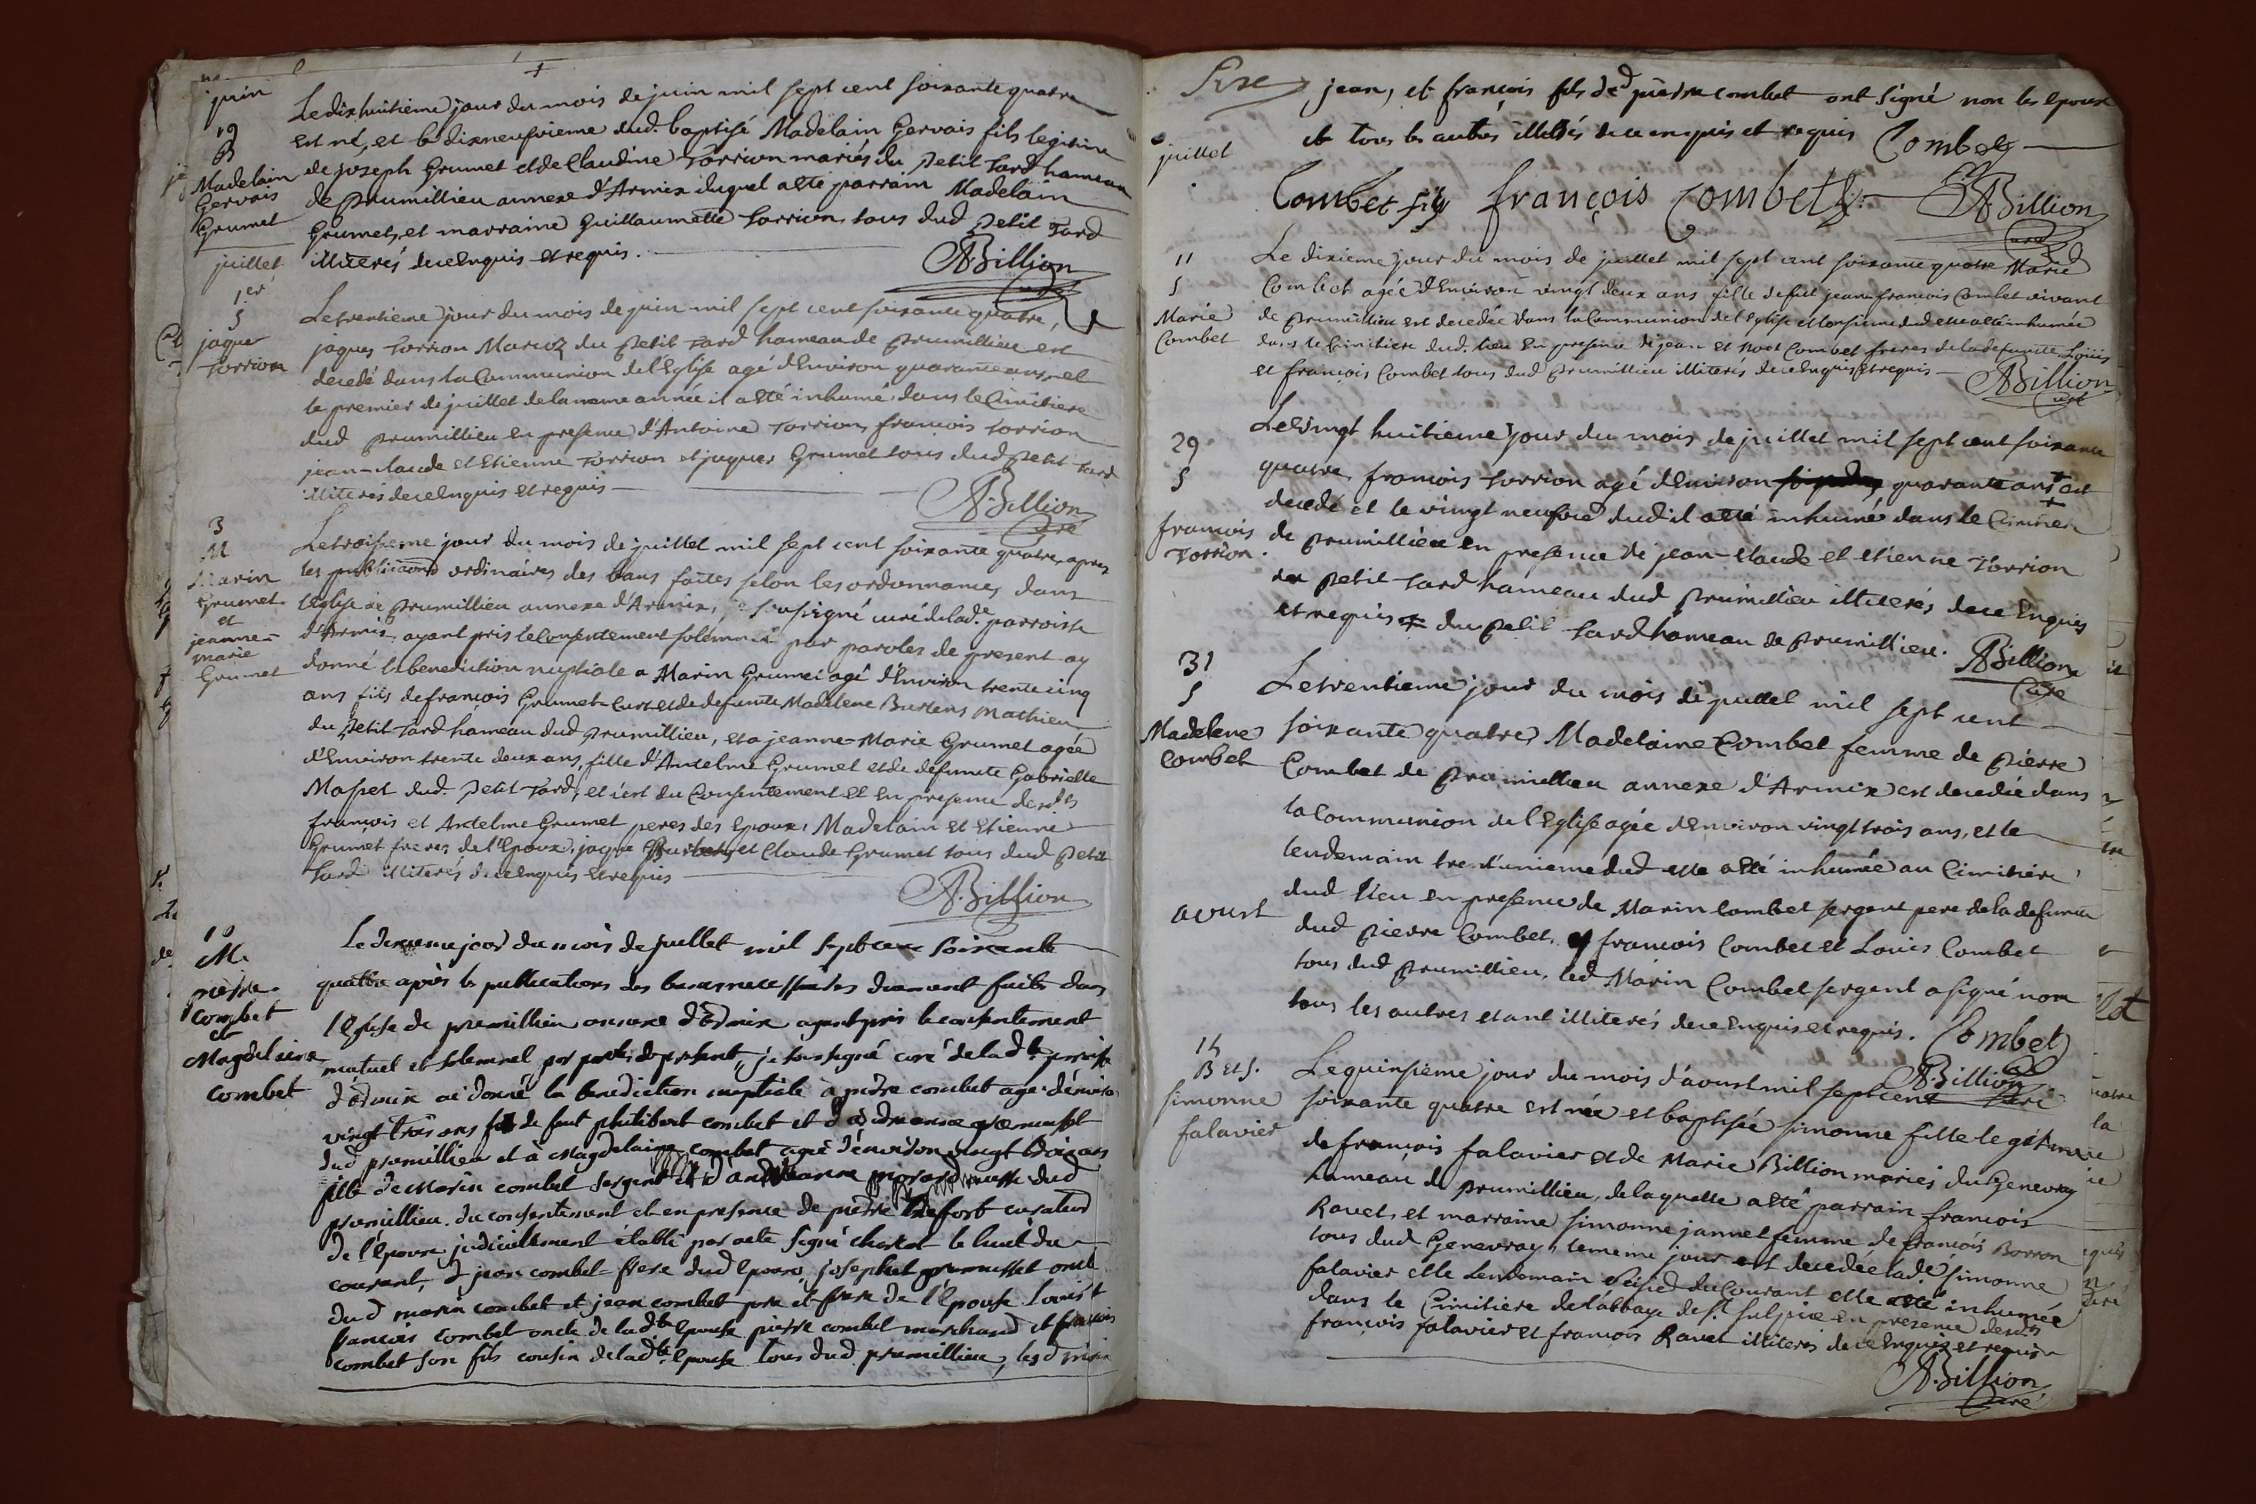 juin
19
B
Madelain
Gervais
Grumet
Le dix huitieme jour du mois de juin mil sept cent soixante quatre
est né, et le dixneufvieme dud. baptisé Madelain Gervais fils legitime
de joseph Grumet et de Claudine Torrion mariés du petit Tard hameau
de prumillieu annexe d'Armix duquel a été parrain Madelain
Grumet, et marraine Guillaumette Torrion tous dud petit Tard
illiterés de ce enquis et requis.
A. Billion
curé
juillet
1.er
S
jaques
Torrion
Le trentieme jour du mois de juin mil sept cent soixante quatre,
jaques Torrion Marcoz du petit Tard hameau de prumillieu est
decedé dans la Communion de l'Eglise agé d'Environ quarante ans, et
le premier de juillet de la meme année il a été inhumé dans le Cimitiere
dud prumillieu en presence d'Antoine Torrion, francois Torrion
jean-claude et Etienne Torrion et jaques Grumet tous dud petit Tard
illiterés de ce enquis et requis
A. Billion
Curé
3
M
Marin
Grumet
et
jeanne-
marie
Grumet
Le troisieme jour du mois de juillet mil sept cent soixante quatre, apres
les publications ordinaires des bans faites selon les ordonnances, dans
l'Eglise de prumillieu annexe d'Armix, je soussigné curé de lad.e parroisse
d'Armix ayant pris le Consentement solemnel par paroles de present ay
donné la benediction nuptiale a Marin Grumet agé d'Environ trente cinq
ans fils de francois Grumet-Curt et de defunte Madelene Burlens Mathieu
du petit Tard hameau dud prumillieu, et a jeanne-Marie Grumet agée
d'Environ trente deux ans, fille d'Antelme Grumet et de defunte Gabrielle
Maspet dud. petit Tard, et c'est du Consentement et En presence desd.ts
françois et Antelme Grumet peres des Epoux, Madelain et Etienne
Grumet freres de l'Epoux, jaque et Claude Grumet tous dud petit
Tard illiterés de ce enquis et requis
A. Billion
10
M.
pierre
Combet
et
Magdeleine
combet
Le dixieme jour du mois de juillet mil sept cent soixante
quatre après les publications des bans necessaires duement faites dans
l'Eglise de premillieu annexe d'Armix ayant pris le consentement
mutuel et solemnel par paroles de present, je soussigné curé de lad.te parroisse
d'Armix ai donné la benediction nuptiale à pierre combet agé d'environ
vingt trois ans fils de feut philibert combet et d'
dud premillieu et à Magdelaine combet agée d'environ vingt trois ans
fille de Marin combet sergent et d' dud
premillieu. du consentement et en presence de pierre Trefort curateur
de l'épouse judiciellement établi par acte signé le huit du
courant, d jean combet frere dud epoux, joseph oncle
dud marin combet et jean combet pere et frere de l'épouse Louis et
francois combet oncle de lad.te epouse pierre combet marchand et françois
combet son fils cousin de lad.te epouse tous dud premillieu, lesd marin
juillet
jean, et françois fils dud pierre combet ont signé non les epoux
et tous les autres illiterés de ce enquis et requis Combet
Combet fils françois Combet A. Billion
curé
11
S
Marie
Combet
Le dixieme jour du mois de juillet mil sept cent soixante quatre Marie
Combet agée d'Environ vingt deux ans fille de fut jean francois Combet vivant
de prumillieu est decedée dans la Communion de l'Eglise et l'onsieme dud elle a été inhumée
dans le Cimitiere dud. lieu En presence de jean et Noel Combet freres de la defunte Loüis
et françois Combet tous dud prumillieu illiterés de ce enquis et requis
A Billion
curé
29
S
francois
Torrion.
Le vingt huitieme jour du mois de juillet mil sept cent soixante
quatre, francois Torrion agé d'Environ quarante ans + est
decedé et le vingt neufvie dud il a été inhumé dans le Cimitiere
de prumillieu en presence de jean-claude et Etienne Torrion
du petit Tard hameau dud prumillieu illiterés de ce Enquis
et requis + du petit Tard hameau de prumillieu.
A Billion
Curé
31
S
Madelene
Combet
Le trentieme jour du mois de juillet mil sept cent
soixante quatre, Madelaine Combet femme de pierre
Combet de prumillieu annexe d'Armix est decedée dans
la Communion de l'Eglise agée d'Environ vingt trois ans, et le
lendemain trent'unieme dud elle a été inhumée au Cimitiere
dud lieu en presence de Marin Combet sergent pere de la defunte
dud pierre Combet, francois Combet et Louis Combet
tous dud prumillieu, led Marin Combet sergent a signé non
tous les autres etant illiterés de ce Enquis et requis. Combet
A. Billion
Curé
aoust
15
B et S.
simonne
falavier
Le quinsieme jour du mois d'aoust mil sept cent
soixante quatre est née et baptisée simonne fille legitime
de françois falavier et de Marie Billion mariés du Genevray
hameau de prumillieu, de laquelle a été parrain francois
Ravet, et marraine simonne jannet femme de françois Borron
tous dud Genevray, le meme jour est decedée lad.e simonne
falavier elle Lendemain du Courant elle a été inhumée
dans le Cimitiere de l'abbaye de s.t sulpice en presence desd.ts
françois falavier et francois Ravet illiterés de ce Enquis et requis
A. Billion
Curé